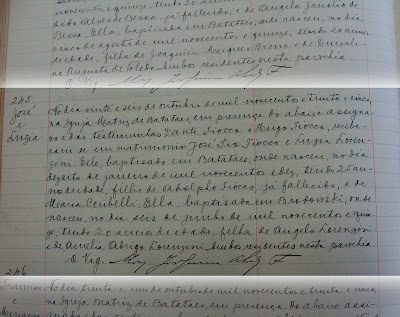 novecentos e quinze, tendo 20 annos
filho Alves de Bessa, já fallecido, e de Angela
Bessa. Ella, baptisada em Batataes, onde nasceu, no dia
cinco de agosto de mil novecentos e quinze, tendo 20 annos
de edade, filha de Joaquim Marques
na Augusta de Toledo. Ambos residentes nesta parochia
O Vig. Mons. Joaquim
245
José
e
Luzia
Ao dia vinte e seis de outubro de mil novecentos e trinta e cinco,
na Igreja Matriz de Batataes, em presença do abaixo assigna-
do e das testemunhas Dante Fiocco e Hugo Fiocco, recebe-
ram-se em matrimonio José Pio Fiocco e Luzia Loren-
zini. Elle, baptisado em Batataes, onde nasceu, no dia
dezoito de janeiro de mil novecentos e dez, tendo 25 an-
nos de edade, filho de Adolpho Fiocco, já fallecido, e de
Maria Ceribelli. Ella, baptisada em Brodowski, onde
nasceu, no dia seis de junho de mil novecentos e quin-
ze, tendo 20 annos de edade, filha de Angelo Lorenzoni
e de Amelia Abrigo Lorenzoni. Ambos residentes nesta parochia
O Vig. Mons. Joaquim
246
e
Ao dia trinta e um de outubro de mil novecentos e trinta e cinco,
na Igreja Matriz de Batataes, em presença do abaixo assi-